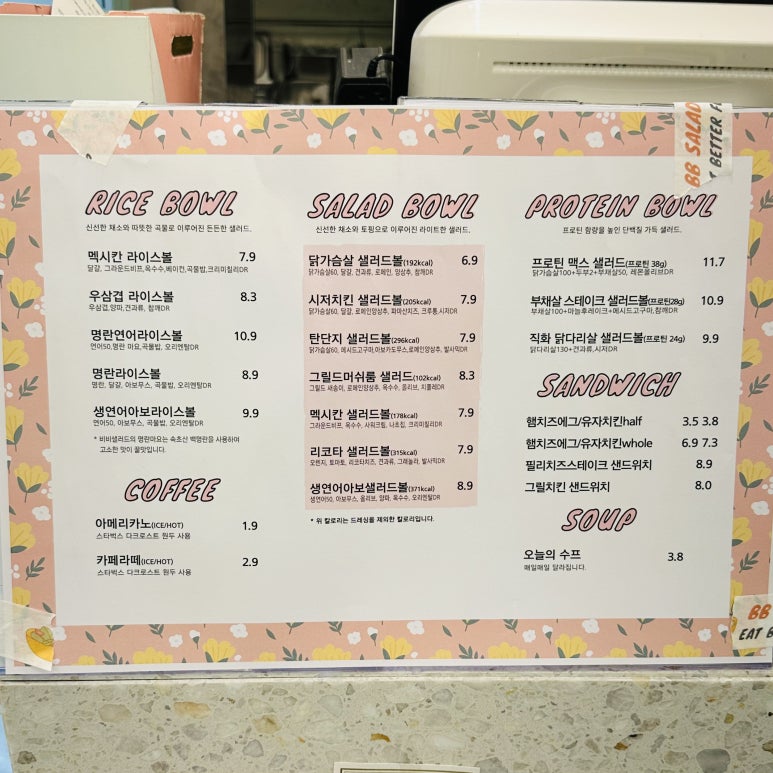 BB SALAD
T BETTER F
RICE BOWL
신선한 채소와 따뜻한 곡물로 이루어진 든든한 샐러드.
멕시칸 라이스볼 7.9
달걀, 그라운드비프,옥수수,베이컨,곡물밥,크리미칠리DR
우삼겹 라이스볼 8.3
우삼겹,양파,견과류, 참깨DR
명란연어라이스볼 10.9
연어50,명란 마요,곡물밥, 오리엔탈DR
명란라이스볼 8.9
명란, 달걀, 아보무스, 곡물밥, 오리엔탈DR
생연어아보라이스볼 9.9
연어50, 아보무스, 곡물밥, 오리엔탈DR
* 비비샐러드의 명란마요는 속초산 백명란을 사용하여
고소한 맛이 꿀맛입니다.
COFFEE
아메리카노(ICE/HOT) 1.9
스타벅스 다크로스트 원두 사용
카페라떼(ICE/HOT) 2.9
스타벅스 다크로스트 원두 사용
SALAD BOWL
신선한 채소와 토핑으로 이루어진 라이트한 샐러드.
닭가슴살 샐러드볼(192kcal) 6.9
닭가슴살60, 달걀, 견과류, 로메인, 양상추, 참깨DR
시저치킨 샐러드볼(205kcal) 7.9
닭가슴살60, 달걀, 로메인양상추, 파마산치즈, 크루통,시저DR
탄단지 샐러드볼(296kcal) 7.9
닭가슴살60, 메시드고구마,아보카도무스,로메인양상추, 발사믹DR
그릴드머쉬룸 샐러드(102kcal) 8.3
그릴드 새송이, 로메인양상추, 옥수수, 올리브, 치폴레DR
멕시칸 샐러드볼(178kcal) 7.9
그라운드비프, 옥수수, 사워크림, 나초칩, 크리미칠리DR
리코타 샐러드볼(315kcal) 7.9
오렌지, 토마토, 리코타치즈, 견과류, 그래놀라, 발사믹DR
생연어아보샐러드볼(371kcal) 8.9
생연어50, 아보무스, 올리브, 양파, 옥수수, 오리엔탈DR
* 위 칼로리는 드레싱을 제외한 칼로리입니다.
PROTEIN BOWL
프로틴 함량을 높인 단백질 가득 샐러드.
프로틴 맥스 샐러드(프로틴 38g) 11.7
닭가슴살100+두부2+부채살50, 레몬올리브DR
부채살 스테이크 샐러드볼(프로틴28g) 10.9
부채살100+마늘후레이크+메시드고구마,참깨DR
직화 닭다리살 샐러드볼(프로틴 24g) 9.9
닭다리살130+견과류,시저DR
SANDWICH
햄치즈에그/유자치킨half 3.5 3.8
햄치즈에그/유자치킨whole 6.9 7.3
필리치즈스테이크 샌드위치 8.9
그릴치킨 샌드위치 8.0
SOUP
오늘의 수프 3.8
매일매일 달라집니다.
BB
EAT B